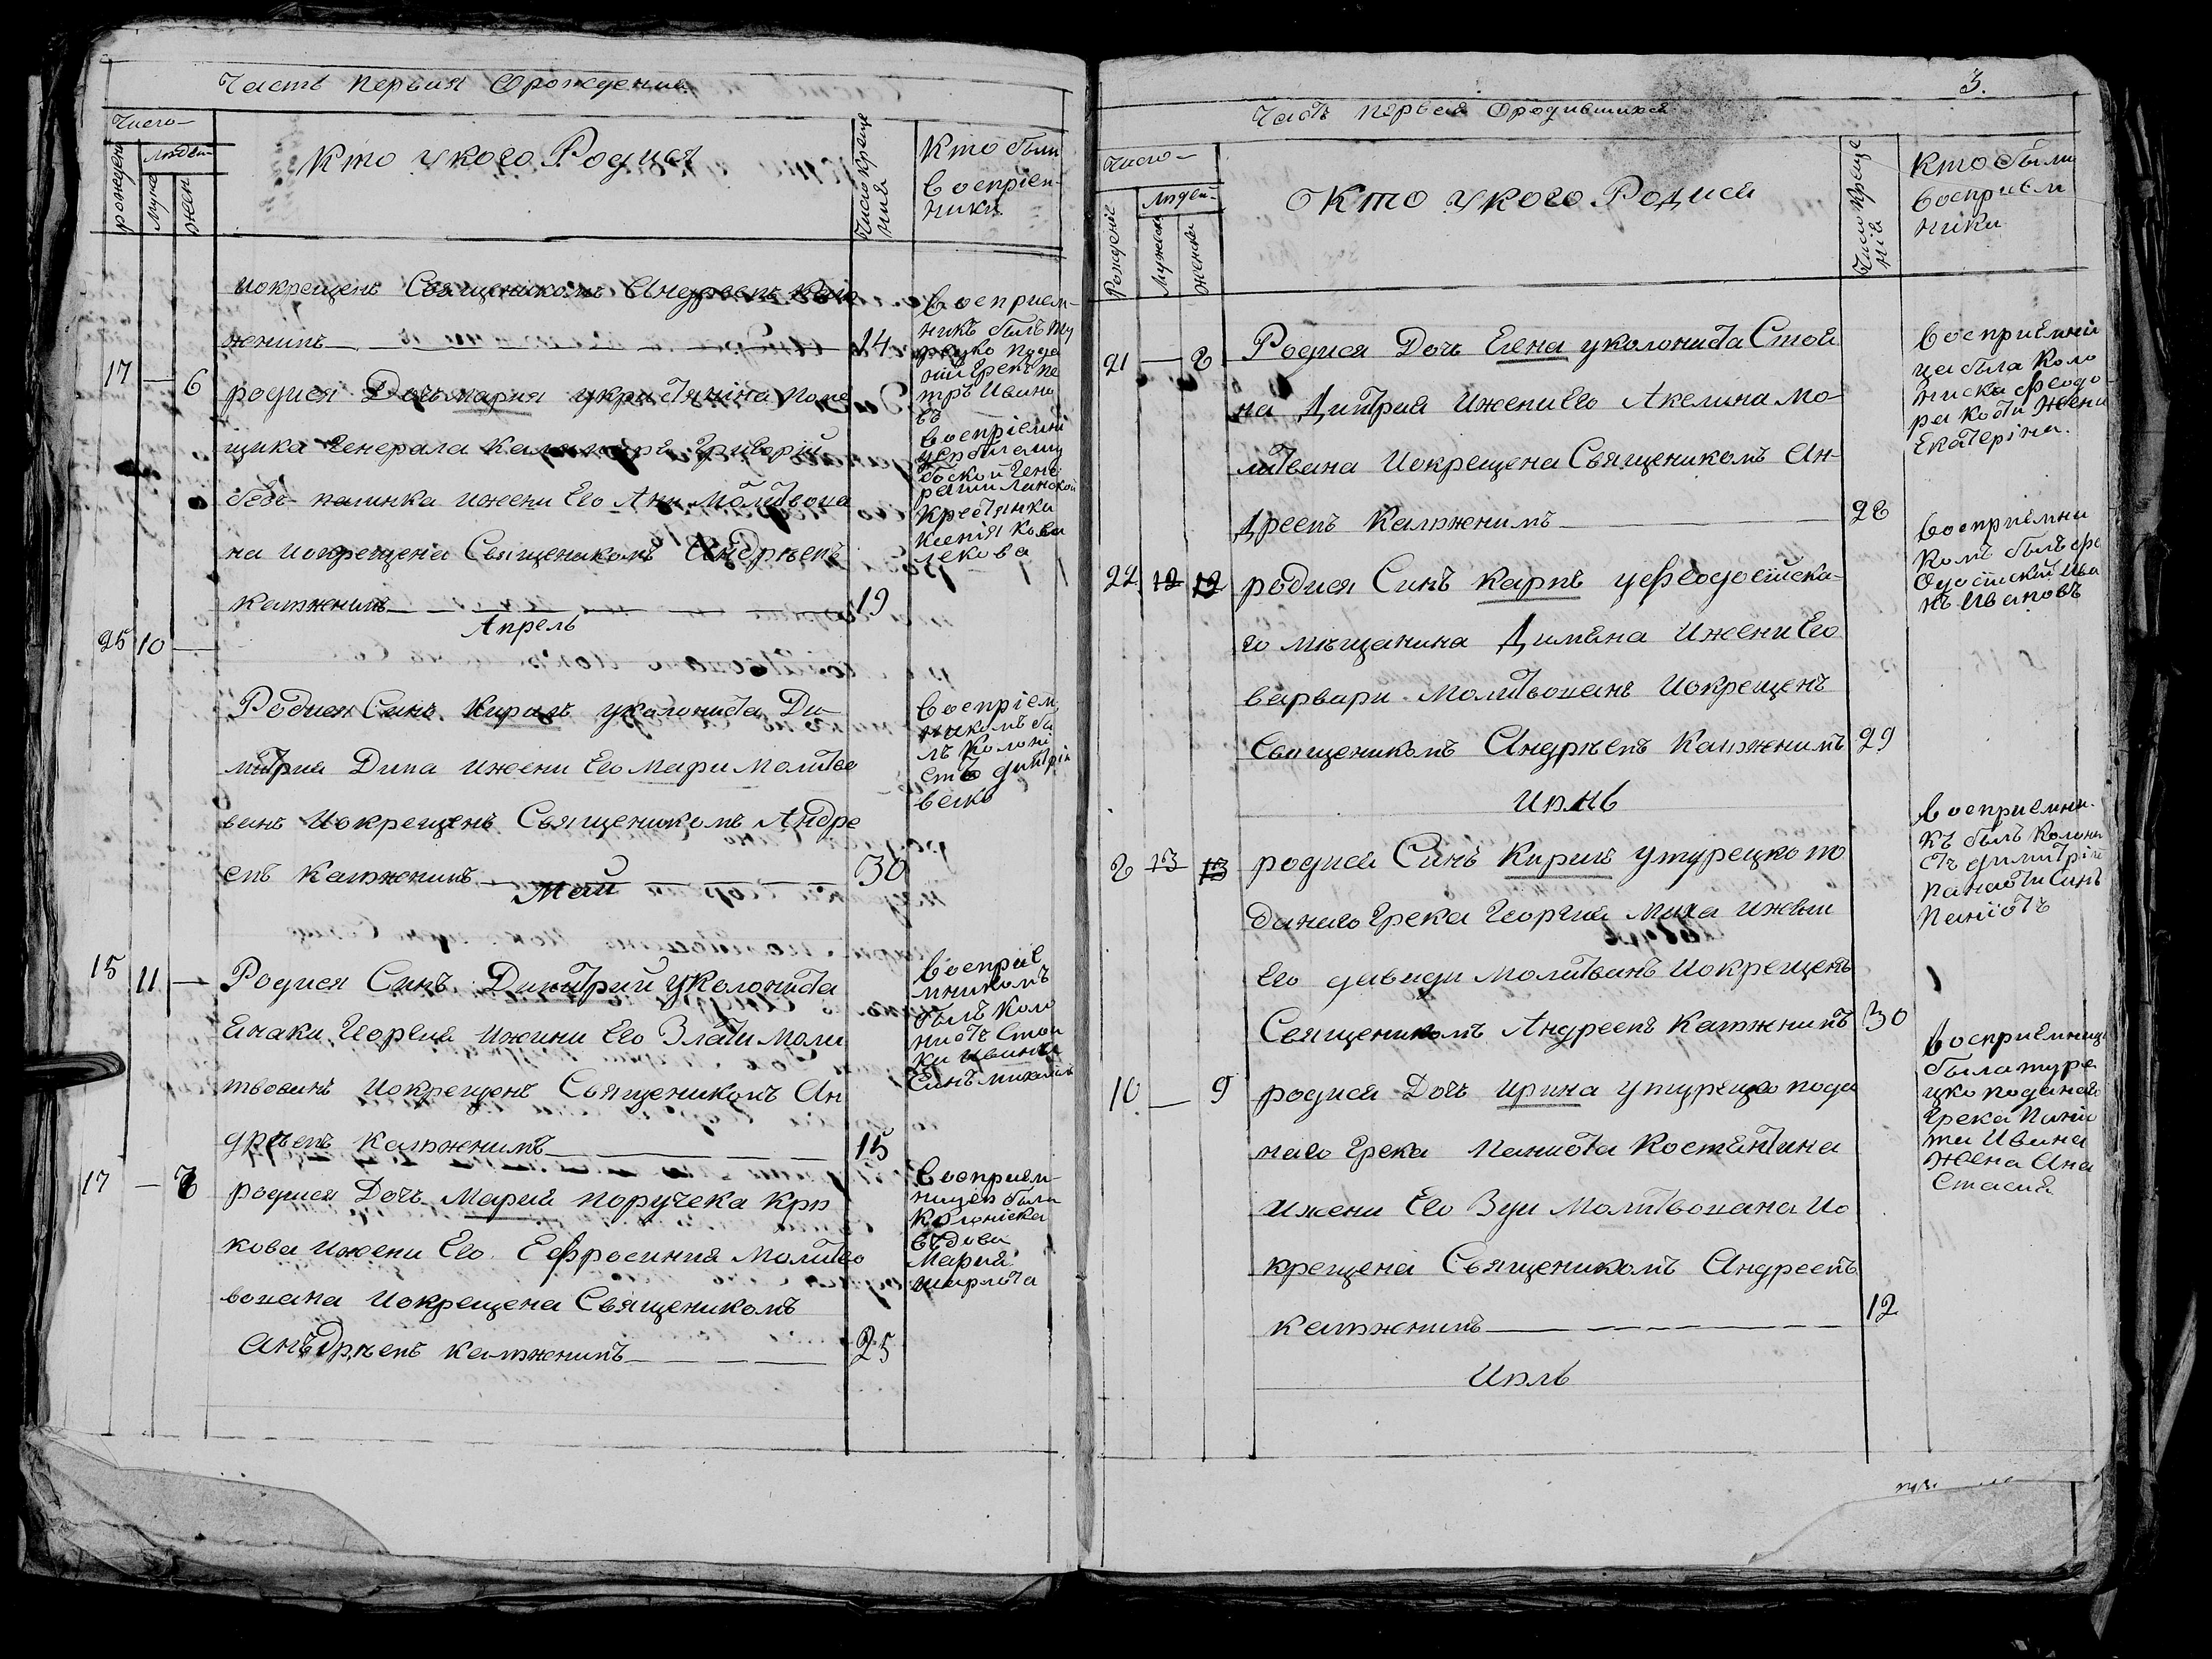 Часть первая Орождении
Число
рождени
людей
муж
жен
Кто укого Родися
Число креще
ния
Кто были
воспріем-
ники
икрещенъ Священикомъ Андреемъ
жнимъ
14
восприем-
никъ былъ ту
рецко пода
ній Грекъ Пе
тръ Ивано
въ
17 — 6
родися Дочь мария укристянина поме
щика Генерала
ижени Его Анн Молитвова
на иокрещена Священикомъ Андреемъ
Катжнимъ
19
воспріемни
цею была
Гене
кресᲂянка
ксенія Кова
лекова
Апрель
25 10 —
Родися Синъ Кирилъ уколониста Ди
митрия Дина ижени Его Мари молитво
ванъ Иокрещенъ Священикомъ Андре
емъ Катжнимъ
30
воспріем
никомъ бы
лъ колони
стъ Димтрій
велко
Май
15 11 —
Родися Синъ Димитрий уколониста
Енаки Георгия ижини Его Злати Моли
твованъ Иокрещенъ Священикомъ Ан
дреемъ Катжнимъ
15
восприе
мникомъ
былъ Коло
нистъ Стои
ки Ивана
Синъ михаилъ
17 — 7
родися Дочь Мария поручека Крю
кова ижени Его Ефросиния Молитво
вонана Иокрещена Священикомъ
Анъдреемъ Катжнимъ
25
восприем
ницею была
Колониска
въдова
Мария
3.
Часть первая Ородившихся
Число
Рождение
Людей
Мужеска
женска
О Кто укого Родися
Число креще
нія
Кто были
восприем
ники
21 — 8
Родися Дочь Елена уколониста Стоя
на Дитрия Ижени Его Акелина Мо-
литвана Иокрещена Священикомъ Ан-
дреемъ Катжнимъ
28
восприемни
ца была Коло
ниска Феодо
ра кости жена
Екатеріна.
22 12 12
родися Синъ Карпъ уфеодосійска-
го мещанина Димяна Ижени Его
варвари Молитвованъ Иокрещенъ
Священикомъ Андреемъ Катжнимъ
29
восприемни
комъ былъ фе
одосійский Ива
нъ Ивановъ
Июнь
2 13 13
родися Синъ Кирилъ утурецко по
данаго Грека Георгия Миха ижени
Его давиди Молитванъ Иокрещенъ
Священикомъ Андреемъ Катжнимъ
30
восприемни-
къ былъ Колони
стъ Димитрій
Панаоти Синъ
Панаіотъ
10 — 9
родися Дочь Ирина утурецко пода
наго Грека Паниота Костантина
ижени Его Зуи Молитвована Ио
крещена Священикомъ Андреемъ
Катжнимъ
12
восприемница
была туре
цко поданаго
Грека Панаио
ти Ивана
жена Ана
стасия
Июль